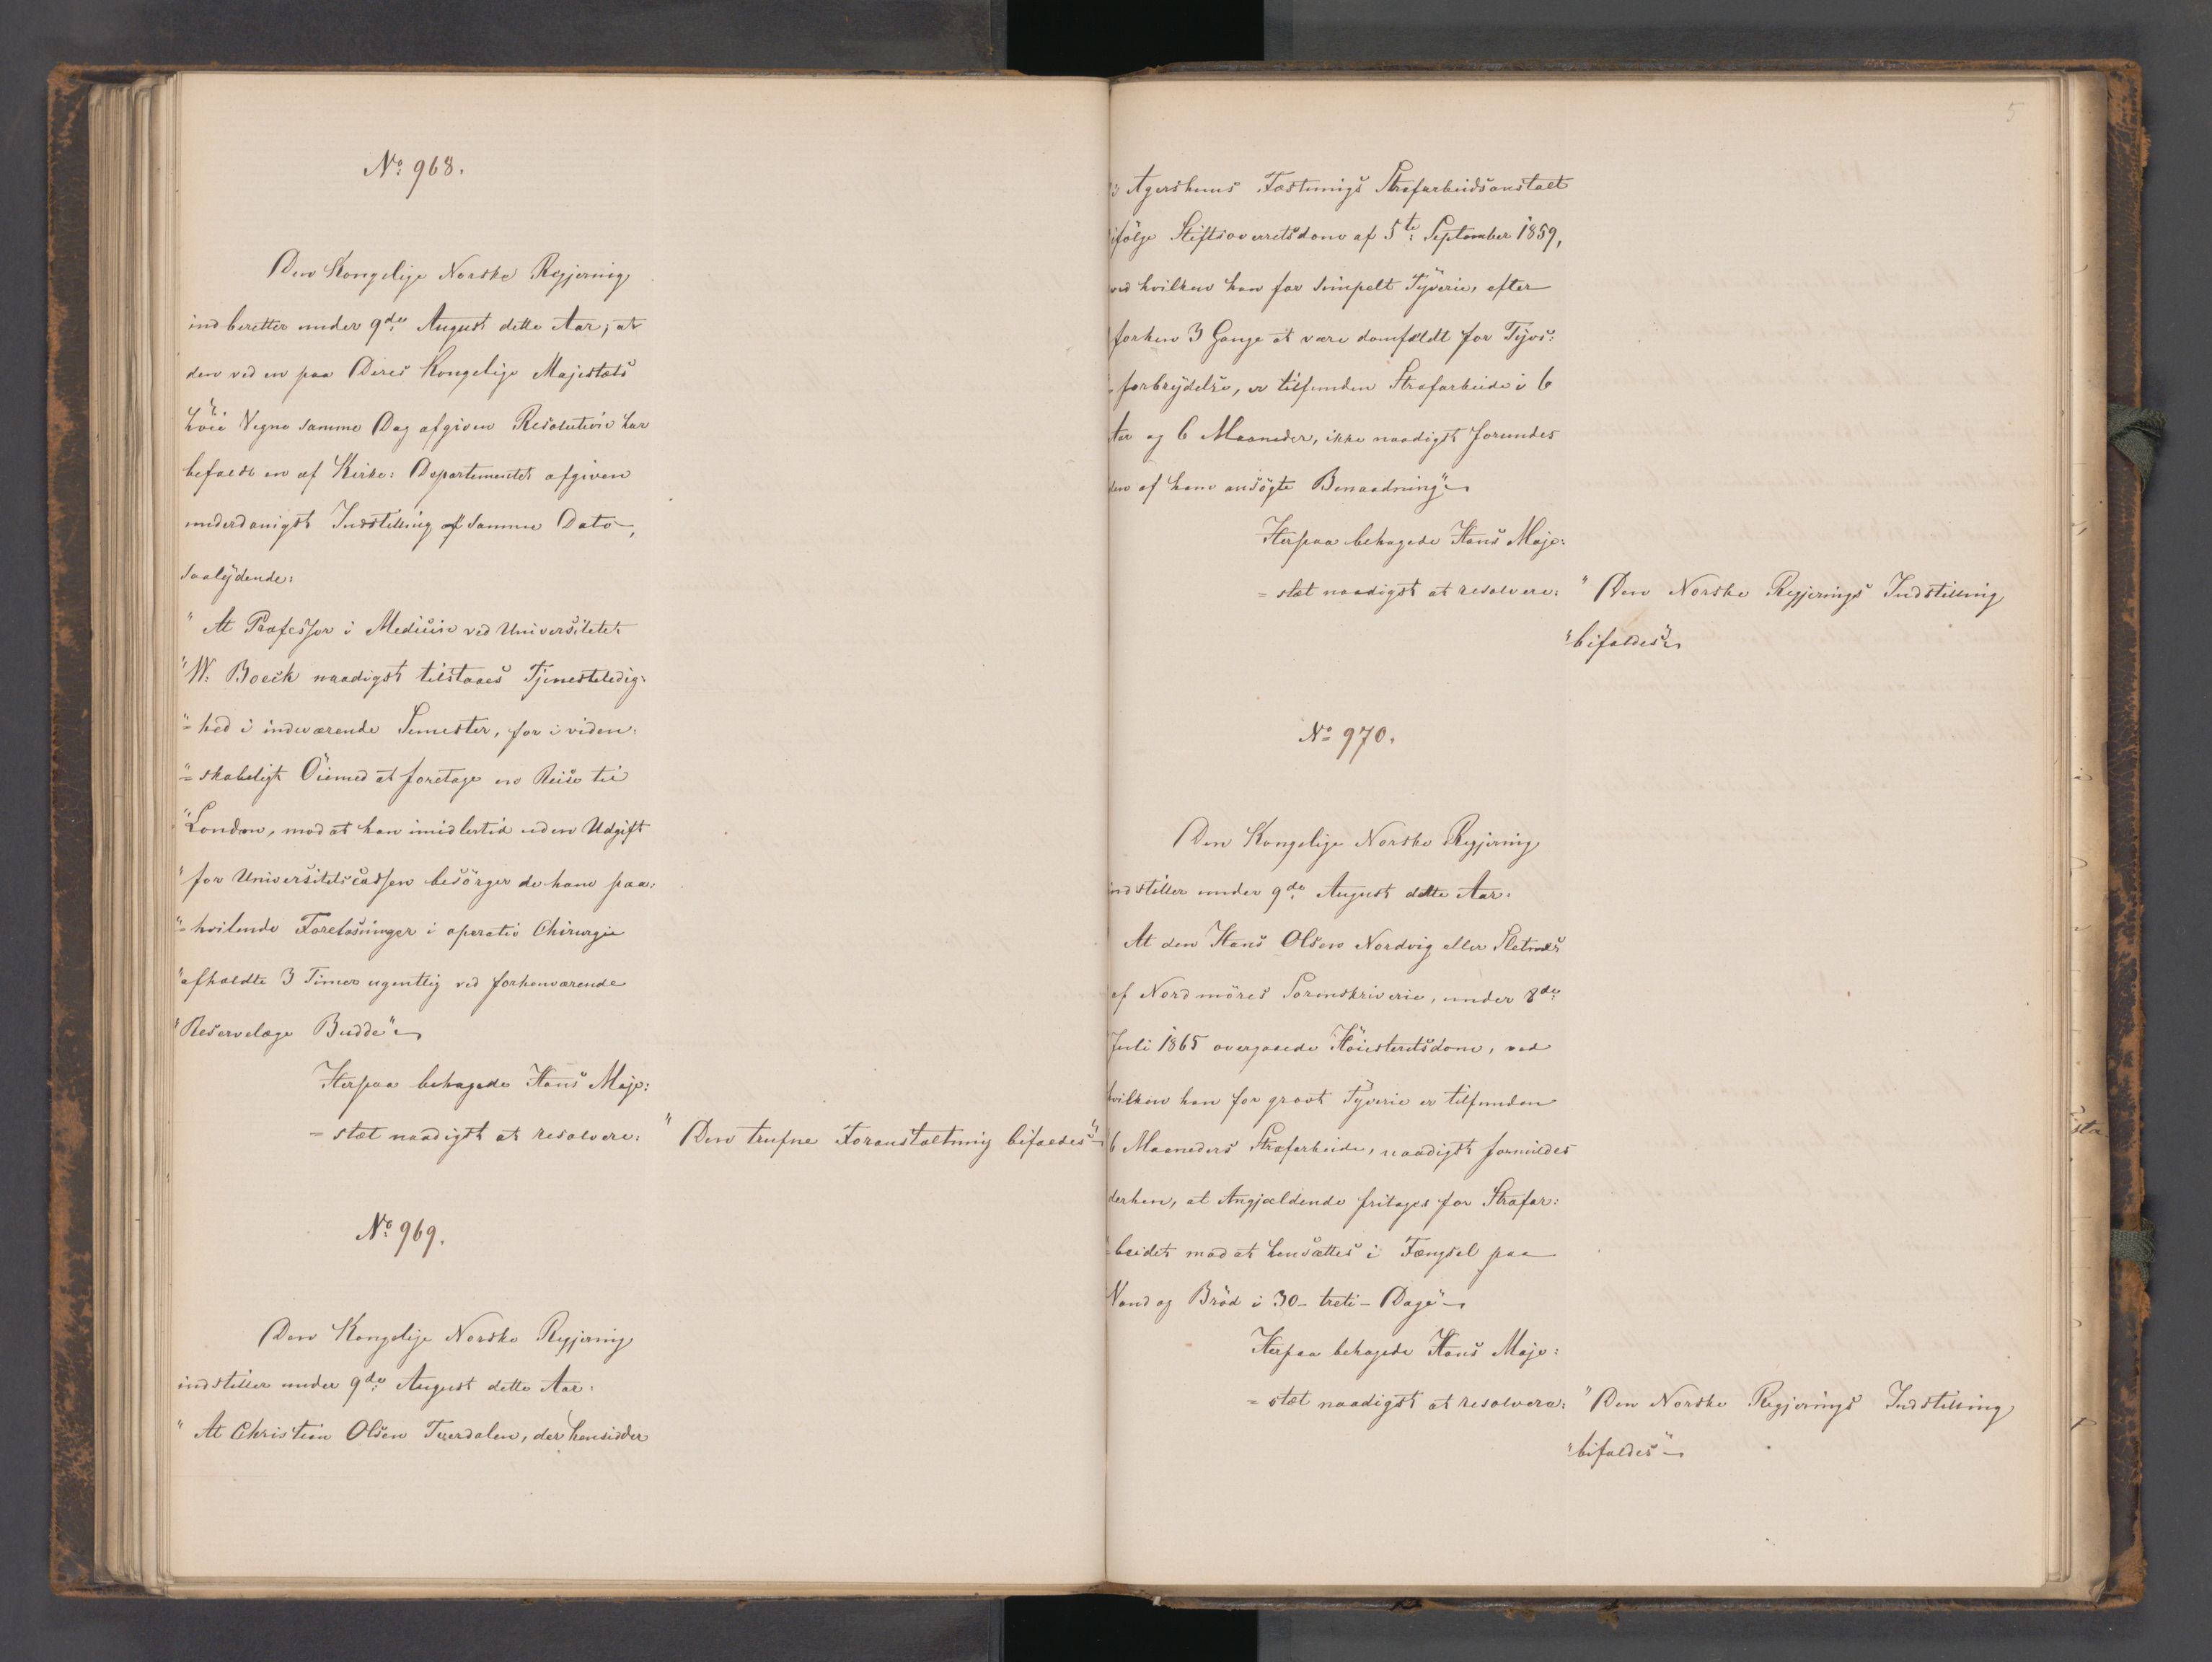 No: 968.
Den Kongelige Norske Regjering
indberetter under 9de August dette Aar, at
den ved en paa Deres Kongelige Majestæts
höie Vegne samme Dag afgiven Resolution har
befalet en af Kirke: Departementet afgiven
underdanigst Indstilling af samme Dato,
saalydende:
" At Professor i Medicin ved Universitetet
"W. Boeck naadigst tilstaaes Tjenesteledig:
"=hed i indeværende Semester, for i viden:
"=skabeligt Öiemed at foretage en Reise til
"London, mod at han imidlertid uden Udgift
"for Universitetscassen besörger de ham paa:
"=hvilende Forelæsninger i operativ Chirurgie
"afholdte 3 Timer ugentlig ved forhenværende
"Reservelæge Budde"
Herpaa behagede Hans Maje:
=stæt naadigst at resolvere: "Den trufne Foranstaltning bifaldes"
No: 969.
Den Kongelige Norske Regjering
indstiller under 9de August dette Aar:
" At Christian Olsen Tuerdalen, der hensidder
5
i Agershuus Fæstnings Strafarbeidsanstalt
ifölge Stiftsoverretsdom af 5te September 1859,
ved hvilken han for simpelt Tyverie, efter
forhen 3 Gange at være domfældt for Tyvs:
=forbrydelse, er tilfunden Strafarbeide i 6
Aar og 6 Maaneder, ikke naadigst forundes
den af ham ansögte Benaadning"
Herpaa behagede Hans Maje:
=stæt naadigst at resolvere: "Den Norske Regjerings Indstilling
"bifaldes"
No: 970.
Den Kongelige Norske Regjering
indstiller under 9de August dette Aar:
At den Hans Olsen Nordvig eller Sletnæs
af Nordmöres Sorenskriverie, under 8de
Juli 1865 overgaaede Höiesteretsdom, ved
hvilken han for grovt Tyverie er tilfunden
6 Maaneders Strafarbeide, naadigst formildes
derhen, at Angjældende fritages for Strafar:
=beidet mod at hensættes i Fængsel paa
Vand og Bröd i 30 - treti - Dage"
Herpaa behagede Hans Maje:
=stæt naadigst at resolvere: "Den Norske Regjerings Indstilling
"bifaldes"